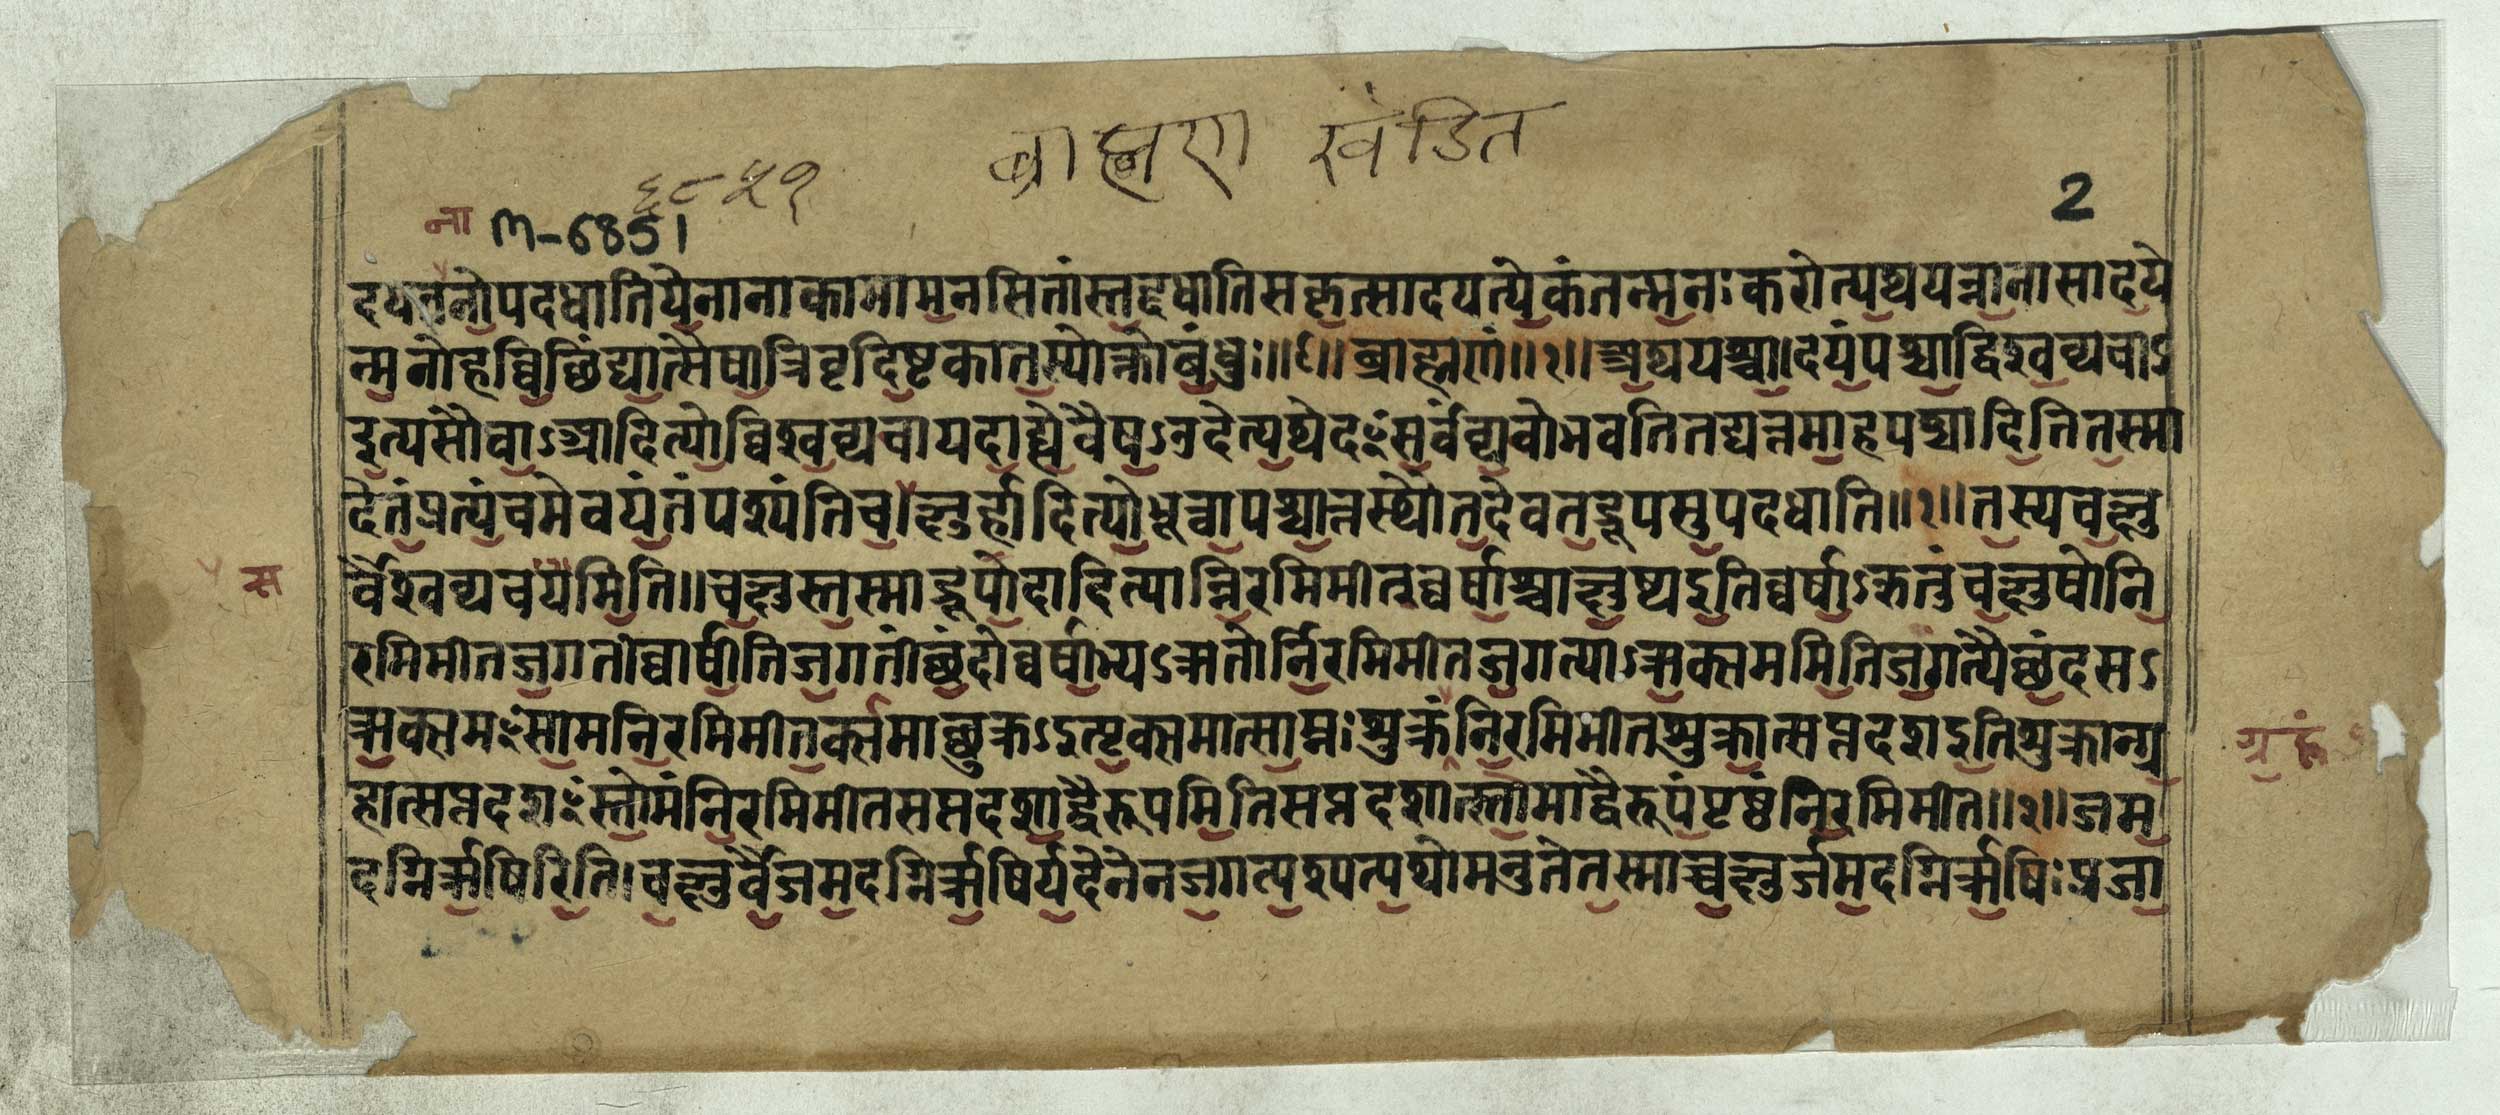 ब्राह्मण खंडित
६८५१
2
ना M-6851
दथ नानोपदधाति ये नाना कामा मनसि तांस्तद्दधाति सकृत्सादयत्येकं तन्मनः करोत्यथ यन्नाना सादये
न्मनो ह विछिंद्यात्सैषा त्रिवृदिष्टका तस्योक्तो बंधुः॥६॥ ब्राह्मणं॥१॥ अथ पश्चा।दयं पश्चाद्विश्वव्यचाऽ
इत्यसौ वाऽआदित्यो विश्वव्यचा यदा ह्येवैषऽउदेत्यथेदᳪ सर्वं व्यचो भवति तद्यत्तमाह पश्चादिति तस्मा
देतं प्रत्यंचमेव यंतं पश्यंति च।क्षुर्हादित्यो भूत्वा पश्चात्तस्थौ तदेव तद्रूपमुपदधाति॥१॥ तस्य चक्षु
र्वैश्वव्यचसमिति॥ चक्षुस्तस्माद्रूपादादित्यान्निरमिमीत वर्षाश्चाक्षुष्य इति वर्षाऽऋतुं चक्षुषो नि
स
रमिमीत जगती वार्षीति जगतीं छंदो वर्षाभ्यऽऋतोर्निरमिमीत जगत्याऽऋक्सममिति जगत्यै छंदसऽ
ऋक्समᳪ साम निरमिमीतर्क्समाच्छुक्रऽइत्यृक्समात्साम्नः शुक्रं निरमिमीत शुक्रात्सप्तदश इति शुक्रान्ग्र
ग्रहं
हात्सप्तदशᳪ स्तोमं निरमिमीत सप्तदशाद्वैरूपमिति सप्तदशात्स्तोमाद्वैरूपं पृष्ठं निरमिमीत॥२॥ जम
दग्निर्ऋषिरिति। चक्षुर्वै जमदग्निर्ऋषिर्यदेनेन जगत्पश्यत्यथो मनुते तस्माच्चक्षुर्जमदग्निर्ऋषिः प्रजा